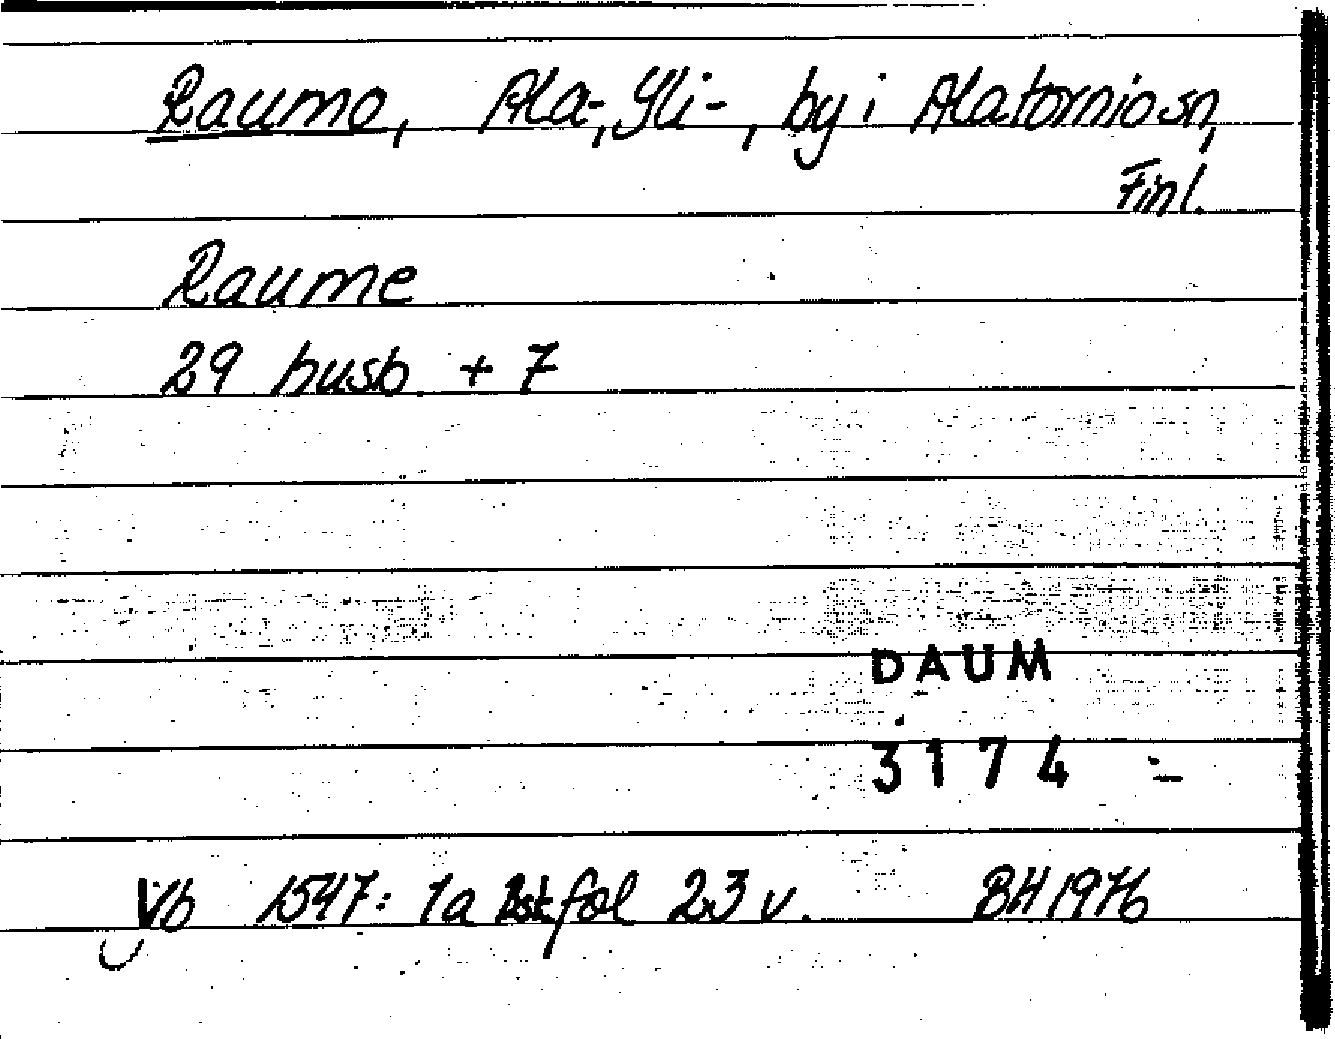 Raumo, Ala-, Yli-, by i Alatornio sn,
Finl.
Raume
29 husb + 7
DAUM
3174
Vb 1547: 1a fol 23 v. BH 1976